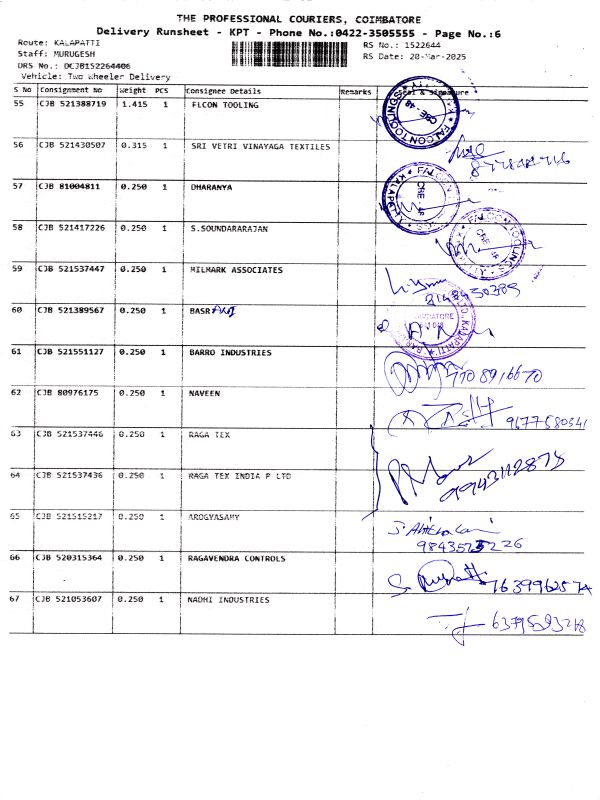 THE PROFESSIONAL COURIERS, COIMBATORE
Delivery Runsheet - KPT - Phone No.:0422-3505555 - Page No.:6
Route: KALAPATTI
RS No.: 1522644
Staff: MURUGESH
RS Date: 20-Mar-2025
DRS No.: DCJB152264406
Vehicle: Two Wheeler Delivery
S No Consignment No Weight PCS Consignee Details Remarks & Signature
55 CJB 521388719 1.415 1 FLCON TOOLING
56 CJB 521430507 0.315 1 SRI VETRI VINAYAGA TEXTILES
57 CJB 81004811 0.250 1 DHARANYA
58 CJB 521417226 0.250 1 S.SOUNDARARAJAN
59 CJB 521537447 0.250 1 MILMARK ASSOCIATES
60 CJB 521389567 0.250 1 BASR
61 CJB 521551127 0.250 1 BARRO INDUSTRIES
7708916670
62 CJB 80976175 1 0.250 NAVEEN
9677580341
63 CJB 521537446 0.250 1 RAGA TEX
64 CJB 521537436 0.250 1 RAGA TEX INDIA P LTD
9943112878
65 CJB 521515217 0.250 1 AROGYASAMY
66 CJB 520315364 0.250 1 RAGAVENDRA CONTROLS
7639962574
67 CJB 521053607 0.250 1 NADHI INDUSTRIES
6379593218
FALCON TOOLINGS
CBE - 48